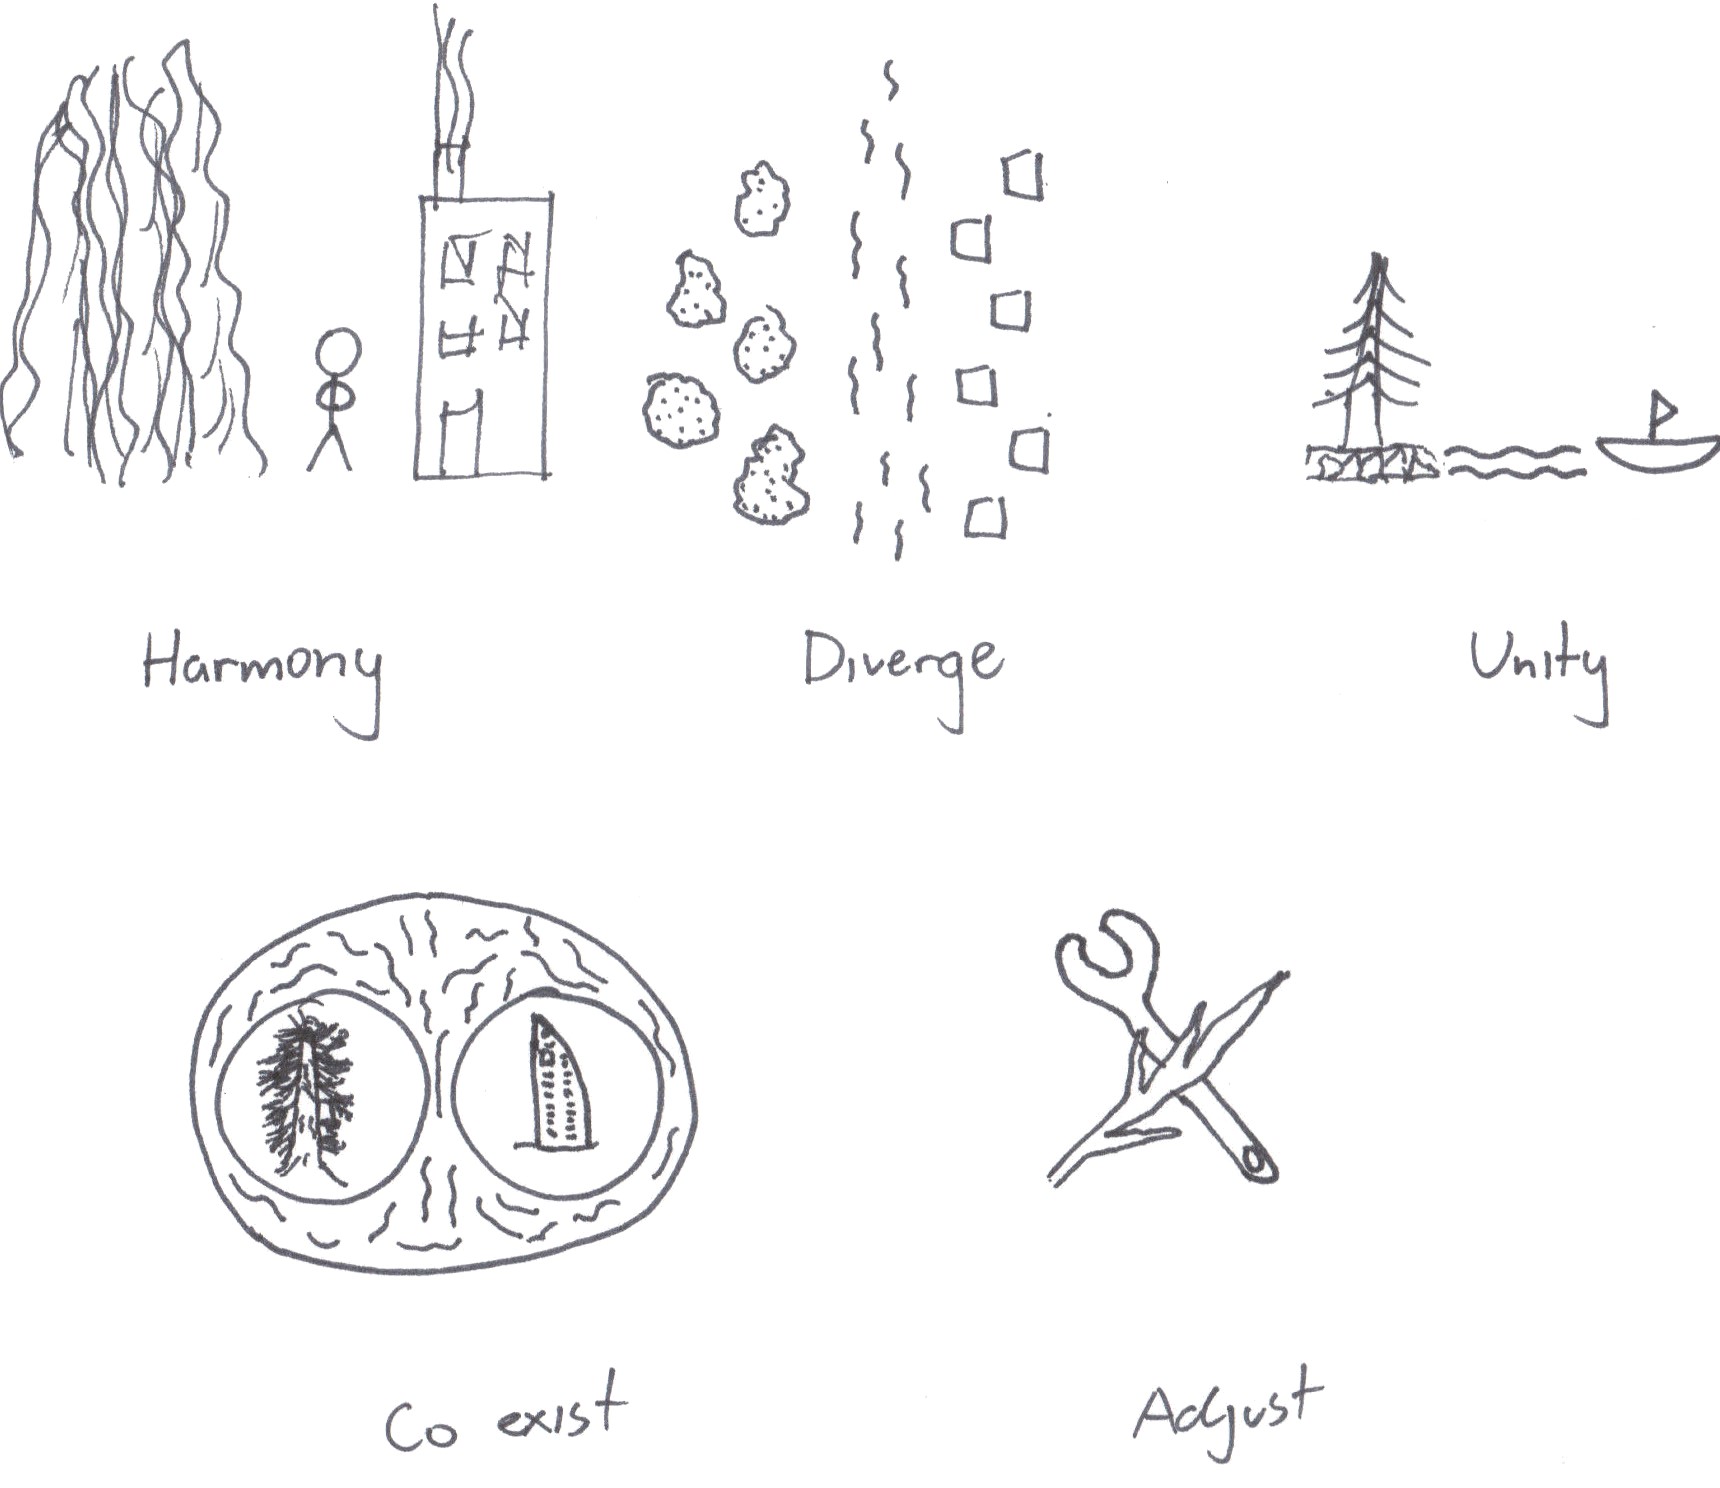 Harmony
Diverge
Unity
Co exist
Adjust